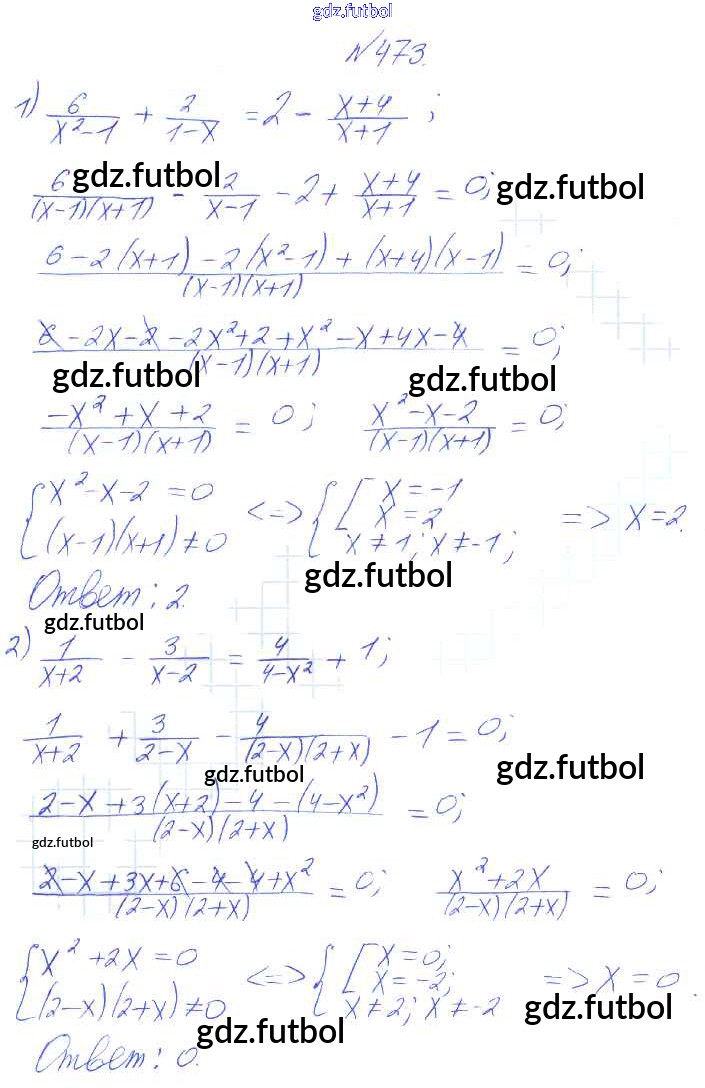 gdz.futbol
№473.
1) 6/(x²-1) + 2/(1-x) = 2 - (x+4)/(x+1) ;
gdz.futbol
6/((x-1)(x+1)) - 2/(x-1) - 2 + (x+4)/(x+1) = 0; gdz.futbol
(6-2(x+1)-2(x²-1)+(x+4)(x-1))/((x-1)(x+1)) = 0;
(6-2x-2-2x²+2+x²-x+4x-4)/((x-1)(x+1)) = 0;
gdz.futbol gdz.futbol
(-x²+x+2)/((x-1)(x+1)) = 0; (x²-x-2)/((x-1)(x+1)) = 0;
{ x²-x-2=0 <=> { [ x=-1
x=2 => x=2.
(x-1)(x+1)≠0 x≠1; x≠-1;
gdz.futbol
Ответ: 2.
gdz.futbol
2) 1/(x+2) - 3/(x-2) = 4/(4-x²) + 1;
1/(x+2) + 3/(2-x) - 4/((2-x)(2+x)) - 1 = 0;
gdz.futbol gdz.futbol
(2-x+3(x+2)-4-(4-x²))/((2-x)(2+x)) = 0;
gdz.futbol
(2-x+3x+6-4-4+x²)/((2-x)(2+x)) = 0; (x²+2x)/((2-x)(2+x)) = 0;
{ x²+2x=0 <=> { [ x=0;
x=-2; => x=0.
(2-x)(2+x)≠0 x≠2; x≠-2
gdz.futbol gdz.futbol
Ответ: 0.